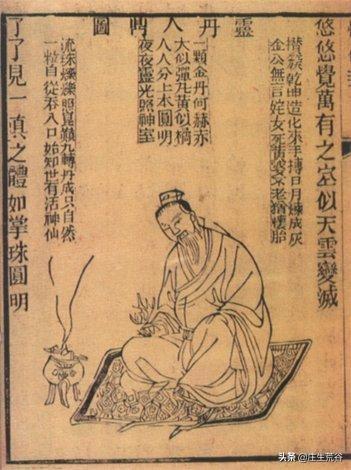 靈丹入鼎圖
悠悠覺萬有之空似天雲變滅
攢簇乾坤造化來手摶日月煉成灰
金公無言姹女死黃婆不老猶懷胎
一顆金丹何赫赤
大似彈丸黃似橘
人人分上本圓明
夜夜靈光照神室
流珠爍爍照崑巔九轉丹成只自然
一粒自從吞入口始知世有活神仙
了了見一真之體如掌珠圓明
头条 @庄生荒谷